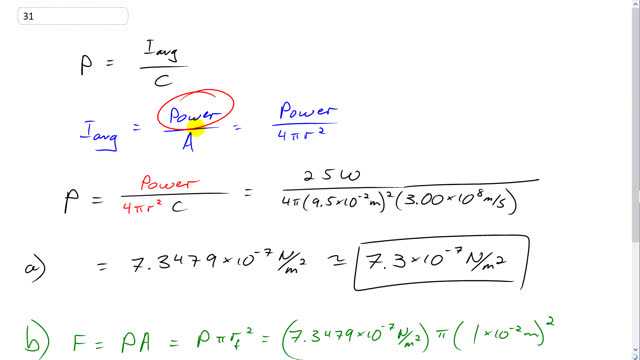 31
P = I avg / C
I avg = Power / A = Power / 4πr²
P = Power / 4πr² C = 25W / 4π(9.5×10⁻²m)²(3.00×10⁸m/s)
a) = 7.3479×10⁻⁷ N/m² ≃ 7.3×10⁻⁷ N/m²
b) F = PA = Pπr_f² = (7.3479×10⁻⁷ N/m²) π (1×10⁻²m)²